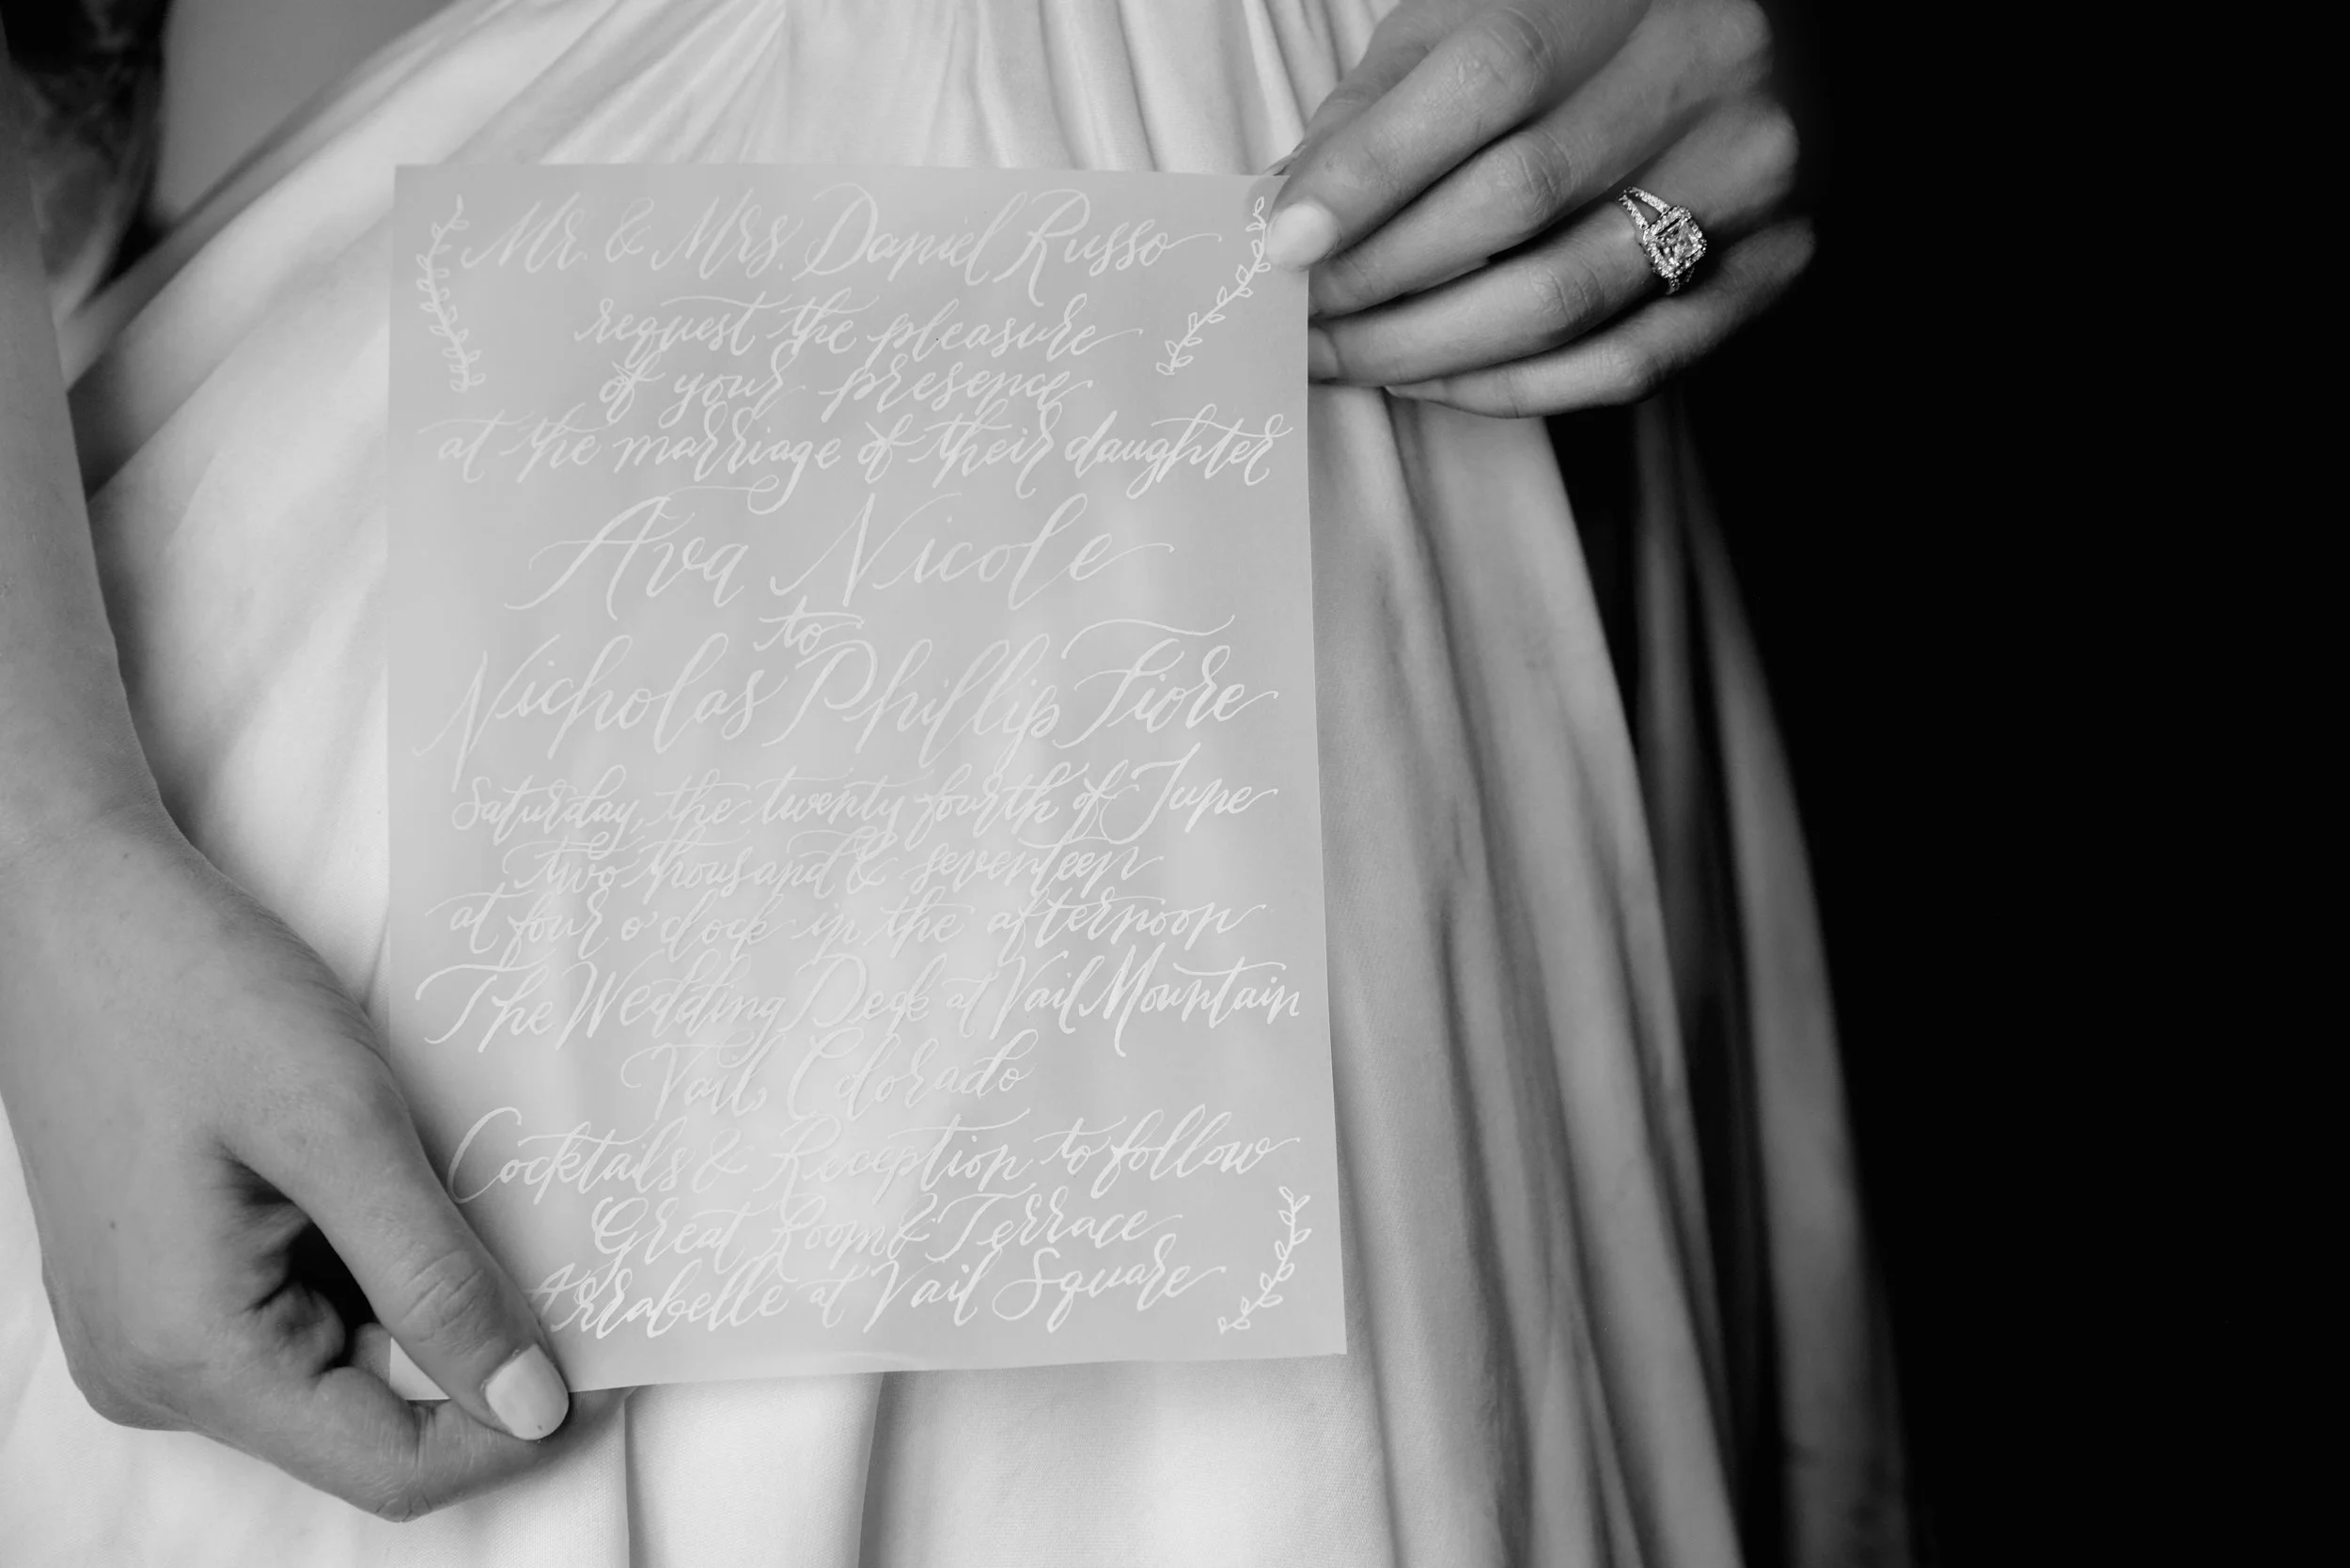 Mr. & Mrs. Daniel Russo
request the pleasure
of your presence
at the marriage of their daughter
Ava Nicole
to
Nicholas Phillip Fiore
Saturday, the twenty fourth of June
two thousand & seventeen
at four o'clock in the afternoon
The Wedding Deck at Vail Mountain
Vail, Colorado
Cocktails & Reception to follow
Great Room & Terrace
Arrabelle at Vail Square